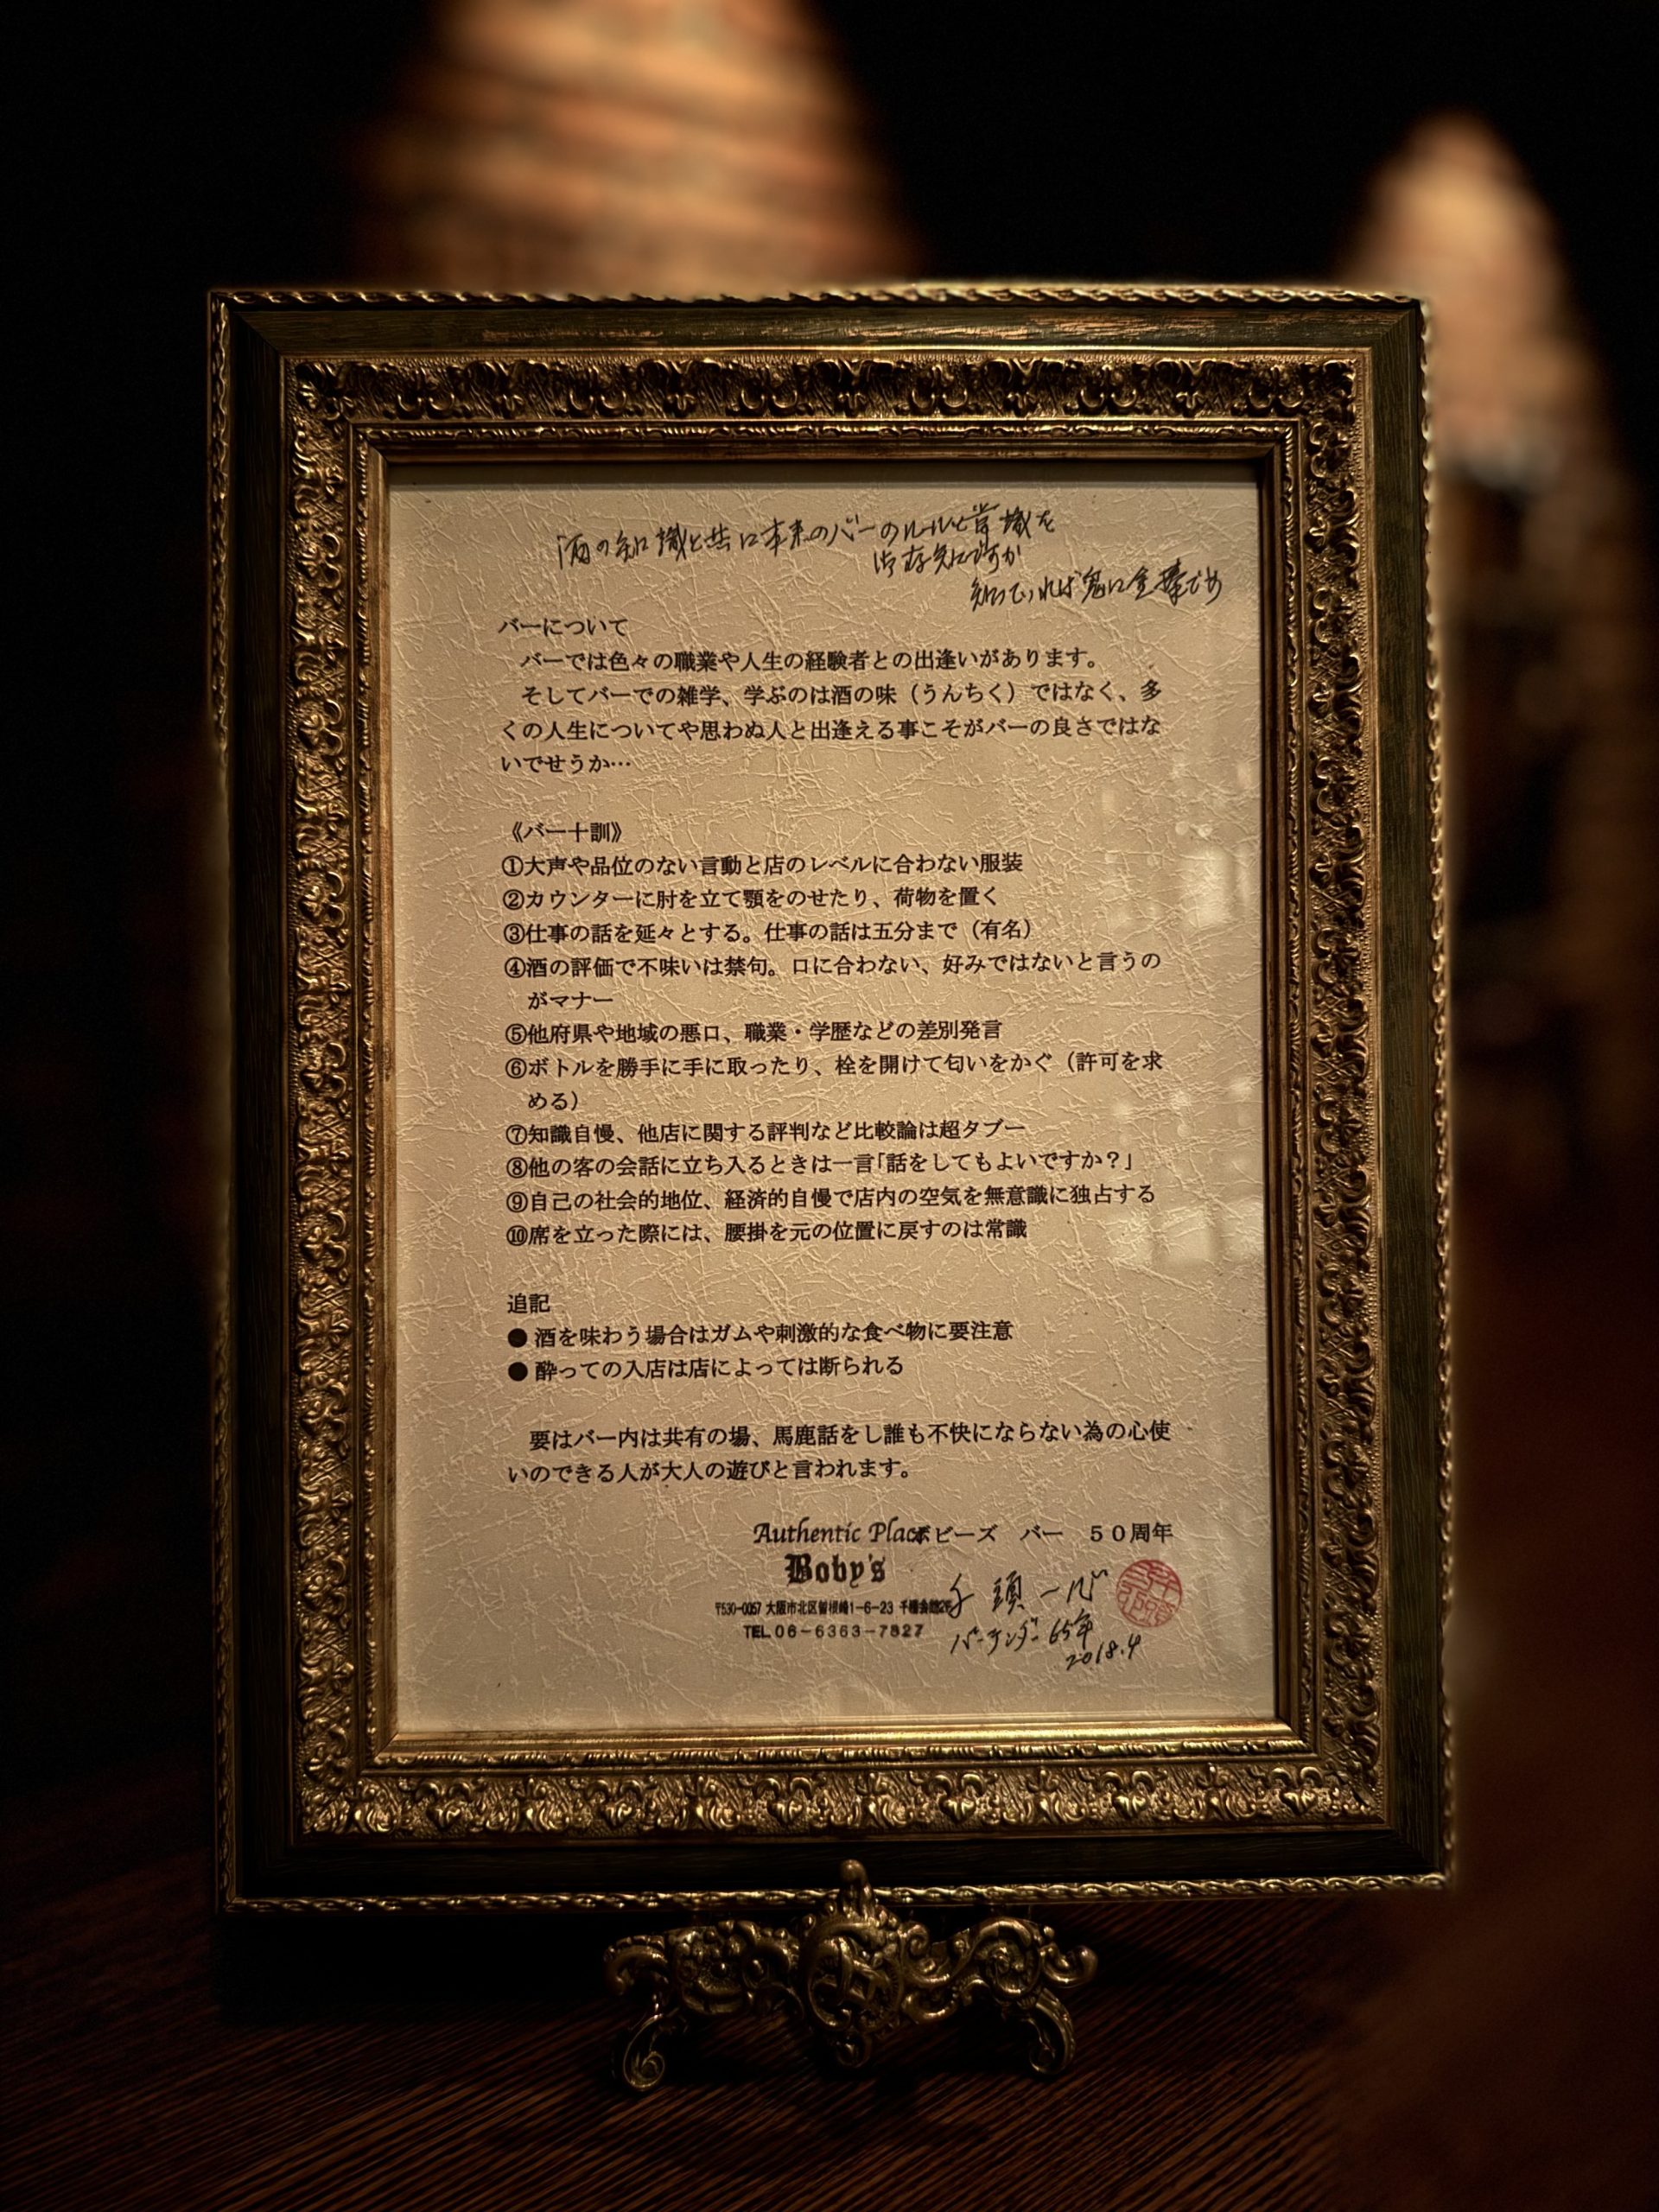 酒の知識と共に本来のバーのルールと常識を
御存知ですか
知っていれば鬼に金棒です
バーについて
バーでは色々の職業や人生の経験者との出逢いがあります。
そしてバーでの雑学、学ぶのは酒の味（うんちく）ではなく、多
くの人生についてや思わぬ人と出逢える事こそがバーの良さではな
いでせうか…
《バー十訓》
①大声や品位のない言動と店のレベルに合わない服装
②カウンターに肘を立て顎をのせたり、荷物を置く
③仕事の話を延々とする。仕事の話は五分まで（有名）
④酒の評価で不味いは禁句。口に合わない、好みではないと言うの
がマナー
⑤他府県や地域の悪口、職業・学歴などの差別発言
⑥ボトルを勝手に手に取ったり、栓を開けて匂いをかぐ（許可を求
める）
⑦知識自慢、他店に関する評判など比較論は超タブー
⑧他の客の会話に立ち入るときは一言「話をしてもよいですか？」
⑨自己の社会的地位、経済的自慢で店内の空気を無意識に独占する
⑩席を立った際には、腰掛を元の位置に戻すのは常識
追記
● 酒を味わう場合はガムや刺激的な食べ物に要注意
● 酔っての入店は店によっては断られる
要はバー内は共有の場、馬鹿話をし誰も不快にならない為の心使
いのできる人が大人の遊びと言われます。
Authentic Place ボビーズ バー ５０周年
Boby's
〒530-0057 大阪市北区曽根崎1-6-23
TEL.06-6363-7827
千頭一心
バーテンダー 65年
2018.4